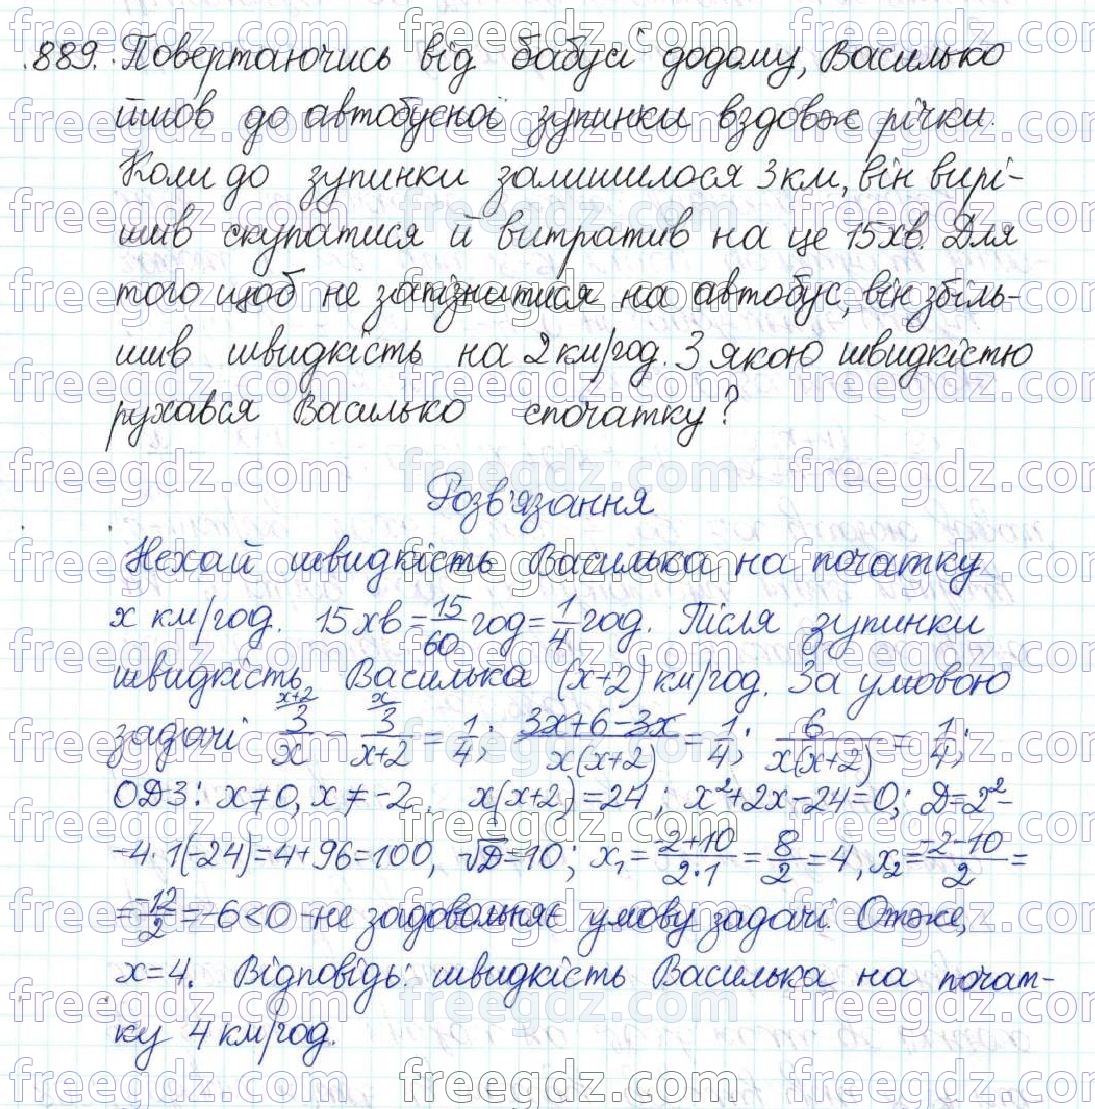 889. Повертаючись від бабусі додому, Василько
йшов до автобусної зупинки вздовж річки.
Коли до зупинки залишилося 3 км, він вирі-
шив скупатися й витратив на це 15 хв. Для
того щоб не запізнитися на автобус, він збіль-
шив швидкість на 2 км/год. З якою швидкістю
рухався Василько спочатку?
Розв'язання
Нехай швидкість Василька на початку
x км/год. 15 хв = 15/60 год = 1/4 год. Після зупинки
швидкість Василька (x+2) км/год. За умовою
задачі 3/x (x+2) - 3/(x+2) (x) = 1/4; (3x+6-3x)/(x(x+2)) = 1/4; 6/(x(x+2)) = 1/4;
ОДЗ: x≠0, x≠-2. x(x+2)=24; x²+2x-24=0; D=2²-
-4·1(-24)=4+96=100, √D=10; x₁=(-2+10)/(2·1)=8/2=4, x₂=(-2-10)/2=
=-12/2=-6<0 -не задовольняє умову задачі. Отже,
x=4. Відповідь: швидкість Василька на почат-
ку 4 км/год.
freegdz.com